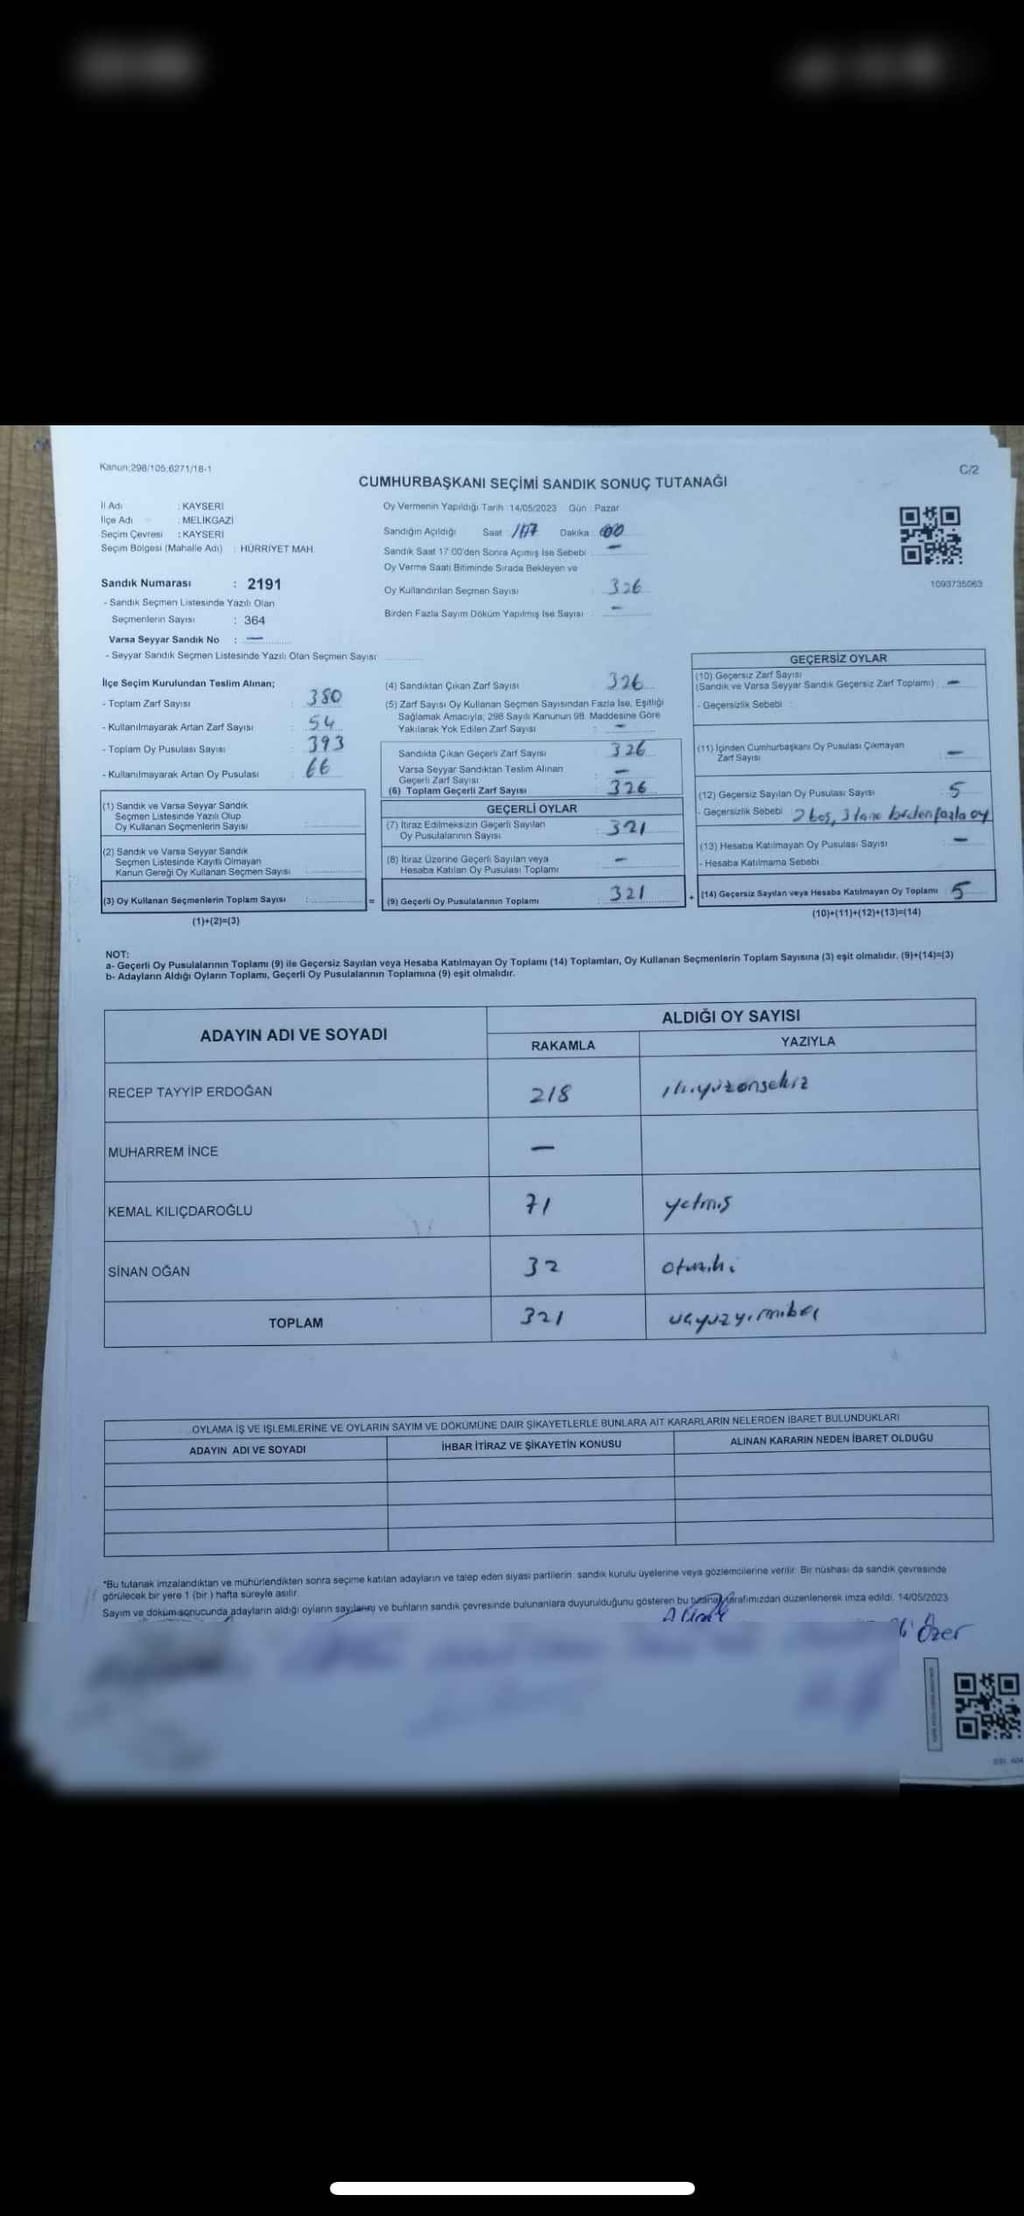 Kanun:298/105,6271/18-1
C/2
CUMHURBAŞKANI SEÇİMİ SANDIK SONUÇ TUTANAĞI
İl Adı : KAYSERİ
İlçe Adı : MELİKGAZİ
Seçim Çevresi : KAYSERİ
Seçim Bölgesi (Mahalle Adı) : HÜRRİYET MAH.
Sandık Numarası : 2191
- Sandık Seçmen Listesinde Yazılı Olan
Seçmenlerin Sayısı : 364
Varsa Seyyar Sandık No : —
- Seyyar Sandık Seçmen Listesinde Yazılı Olan Seçmen Sayısı
Oy Vermenin Yapıldığı Tarih 14/05/2023 Gün : Pazar
Sandığın Açıldığı Saat 17 Dakika 00
Sandık Saat 17:00'den Sonra Açılmış İse Sebebi : —
Oy Verme Saati Bitiminde Sırada Bekleyen ve
Oy Kullandırılan Seçmen Sayısı : 326
Birden Fazla Sayım Döküm Yapılmış İse Sayısı : —
1093735063
İlçe Seçim Kurulundan Teslim Alınan;
- Toplam Zarf Sayısı : 380
- Kullanılmayarak Artan Zarf Sayısı : 54
- Toplam Oy Pusulası Sayısı : 393
- Kullanılmayarak Artan Oy Pusulası : 66
(1) Sandık ve Varsa Seyyar Sandık
Seçmen Listesinde Yazılı Olup
Oy Kullanan Seçmenlerin Sayısı :
(2) Sandık ve Varsa Seyyar Sandık
Seçmen Listesinde Kayıtlı Olmayan
Kanun Gereği Oy Kullanan Seçmen Sayısı :
(3) Oy Kullanan Seçmenlerin Toplam Sayısı :
(1)+(2)=(3)
=
(4) Sandıktan Çıkan Zarf Sayısı : 326
(5) Zarf Sayısı Oy Kullanan Seçmen Sayısından Fazla İse, Eşitliği
Sağlamak Amacıyla, 298 Sayılı Kanunun 98. Maddesine Göre
Yakılarak Yok Edilen Zarf Sayısı : —
Sandıkta Çıkan Geçerli Zarf Sayısı : 326
Varsa Seyyar Sandıktan Teslim Alınan
Geçerli Zarf Sayısı : —
(6) Toplam Geçerli Zarf Sayısı : 326
GEÇERLİ OYLAR
(7) İtiraz Edilmeksizin Geçerli Sayılan
Oy Pusulalarının Sayısı : 321
(8) İtiraz Üzerine Geçerli Sayılan veya
Hesaba Katılan Oy Pusulası Toplamı : —
(9) Geçerli Oy Pusulalarının Toplamı : 321
+
GEÇERSİZ OYLAR
(10) Geçersiz Zarf Sayısı
(Sandık ve Varsa Seyyar Sandık Geçersiz Zarf Toplamı) : —
- Geçersizlik Sebebi :
(11) İçinden Cumhurbaşkanı Oy Pusulası Çıkmayan
Zarf Sayısı : —
(12) Geçersiz Sayılan Oy Pusulası Sayısı : 5
- Geçersizlik Sebebi : 2 boş, 3 tane birden fazla oy
(13) Hesaba Katılmayan Oy Pusulası Sayısı : —
- Hesaba Katılmama Sebebi :
(14) Geçersiz Sayılan veya Hesaba Katılmayan Oy Toplamı : 5
(10)+(11)+(12)+(13)=(14)
NOT:
a- Geçerli Oy Pusulalarının Toplamı (9) ile Geçersiz Sayılan veya Hesaba Katılmayan Oy Toplamı (14) Toplamları, Oy Kullanan Seçmenlerin Toplam Sayısına (3) eşit olmalıdır. (9)+(14)=(3)
b- Adayların Aldığı Oyların Toplamı, Geçerli Oy Pusulalarının Toplamına (9) eşit olmalıdır.
ADAYIN ADI VE SOYADI
ALDIĞI OY SAYISI
RAKAMLA YAZIYLA
RECEP TAYYİP ERDOĞAN 218 ikiyüzonsekiz
MUHARREM İNCE —
KEMAL KILIÇDAROĞLU 71 yetmiş
SİNAN OĞAN 32 otuziki
TOPLAM 321
OYLAMA İŞ VE İŞLEMLERİNE VE OYLARIN SAYIM VE DÖKÜMÜNE DAİR ŞİKAYETLERLE BUNLARA AİT KARARLARIN NELERDEN İBARET BULUNDUKLARI
ADAYIN ADI VE SOYADI İHBAR İTİRAZ VE ŞİKAYETİN KONUSU ALINAN KARARIN NEDEN İBARET OLDUĞU
*Bu tutanak imzalandıktan ve mühürlendikten sonra seçime katılan adayların ve talep eden siyasi partilerin sandık kurulu üyelerine veya gözlemcilerine verilir. Bir nüshası da sandık çevresinde
görülecek bir yere 1 (bir) hafta süreyle asılır.
Sayım ve döküm sonucunda adayların aldığı oyların sayılarını ve bunların sandık çevresinde bulunanlara duyurulduğunu gösteren bu tutanak tarafımızdan düzenlenerek imza edildi. 14/05/2023
Özer